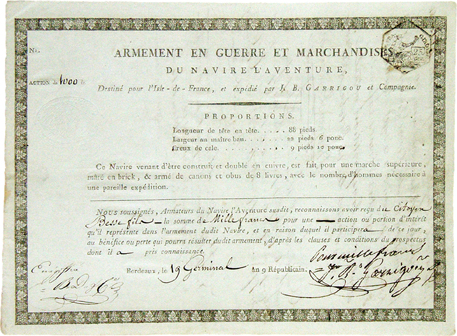 No.
ARMEMENT EN GUERRE ET MARCHANDISES
DU NAVIRE L'AVENTURE,
ACTION de 1000
Destiné pour l'Isle-de-France, et expédié par J. B. GARRIGOU et Compagnie.
PROPORTIONS.
Longueur de tête en tête..... 88 pieds.
Largeur au maître bau....... pieds 6 pouc.
Creux de cale........ 9 pieds 10 pouc.
Ce Navire venant d'être construit et doublé en cuivre, est fait pour une marche supérieure,
mâté en brick, & armé de canons et obus de 8 livres, avec le nombre d'hommes nécessaire à
une pareille expédition.
NOUS soussignés, Armateurs du Navire l'Aventure susdit, reconnaissons avoir reçu du Citoyen
Besse fils la somme de Mille francs pour une action ou portion d'intérêt
qu'il représente dans l'armement dudit Navire, et en raison duquel il participera de ce jour,
au bénéfice ou perte qui pourra résulter dudit armement, d'après les clauses et conditions du prospectus
dont il a pris connaissance.
Bordeaux, le 19 Germinal an 9 Républicain.
Pour mille francs